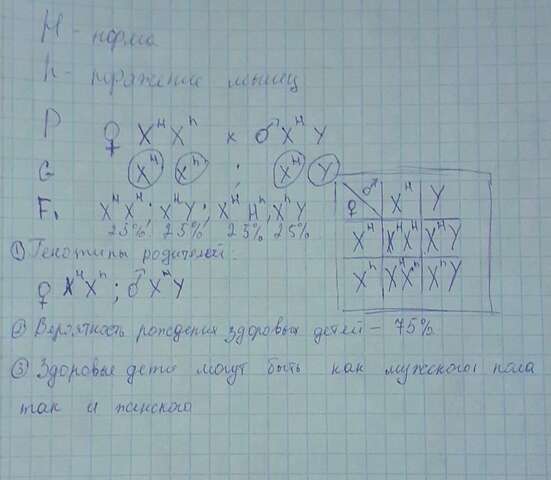 H - норма
h - поражение мышц
P ♀ X^H X^h x ♂ X^H Y
G X^H X^h ; X^H Y
F₁ X^H X^H; X^H Y; X^H H^h; X^h Y
25% 25% 25% 25%
♀ ♂ X^H Y
X^H X^H X^H X^H Y
X^h X^H X^h X^h Y
① Генотипы родителей:
♀ X^H X^h; ♂ X^H Y
② Вероятность рождения здоровых детей - 75%
③ Здоровые дети могут быть как мужского пола
так и женского